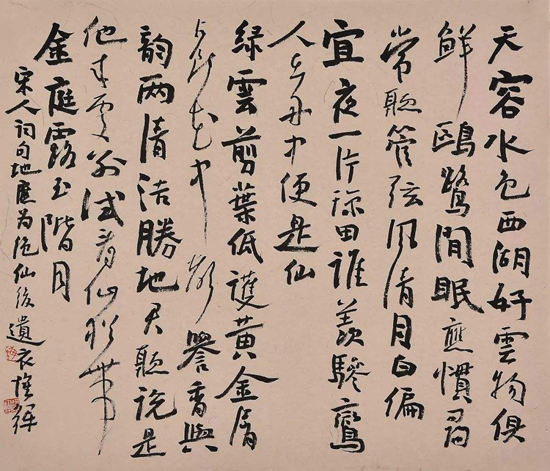 天容水色西湖好雲物俱
鮮鷗鷺閒眠應慣尋
常聽管弦風清月白偏
宜夜一片瓊田誰羨驂鸞
人在舟中便是仙
綠雲剪葉低護黃金屑
占斷花中聲譽香與
韻兩清潔勝地君聽說是
他來處別試看仙猶帶
金庭露玉階月
宋人詞句地應為仙後遺衣輝